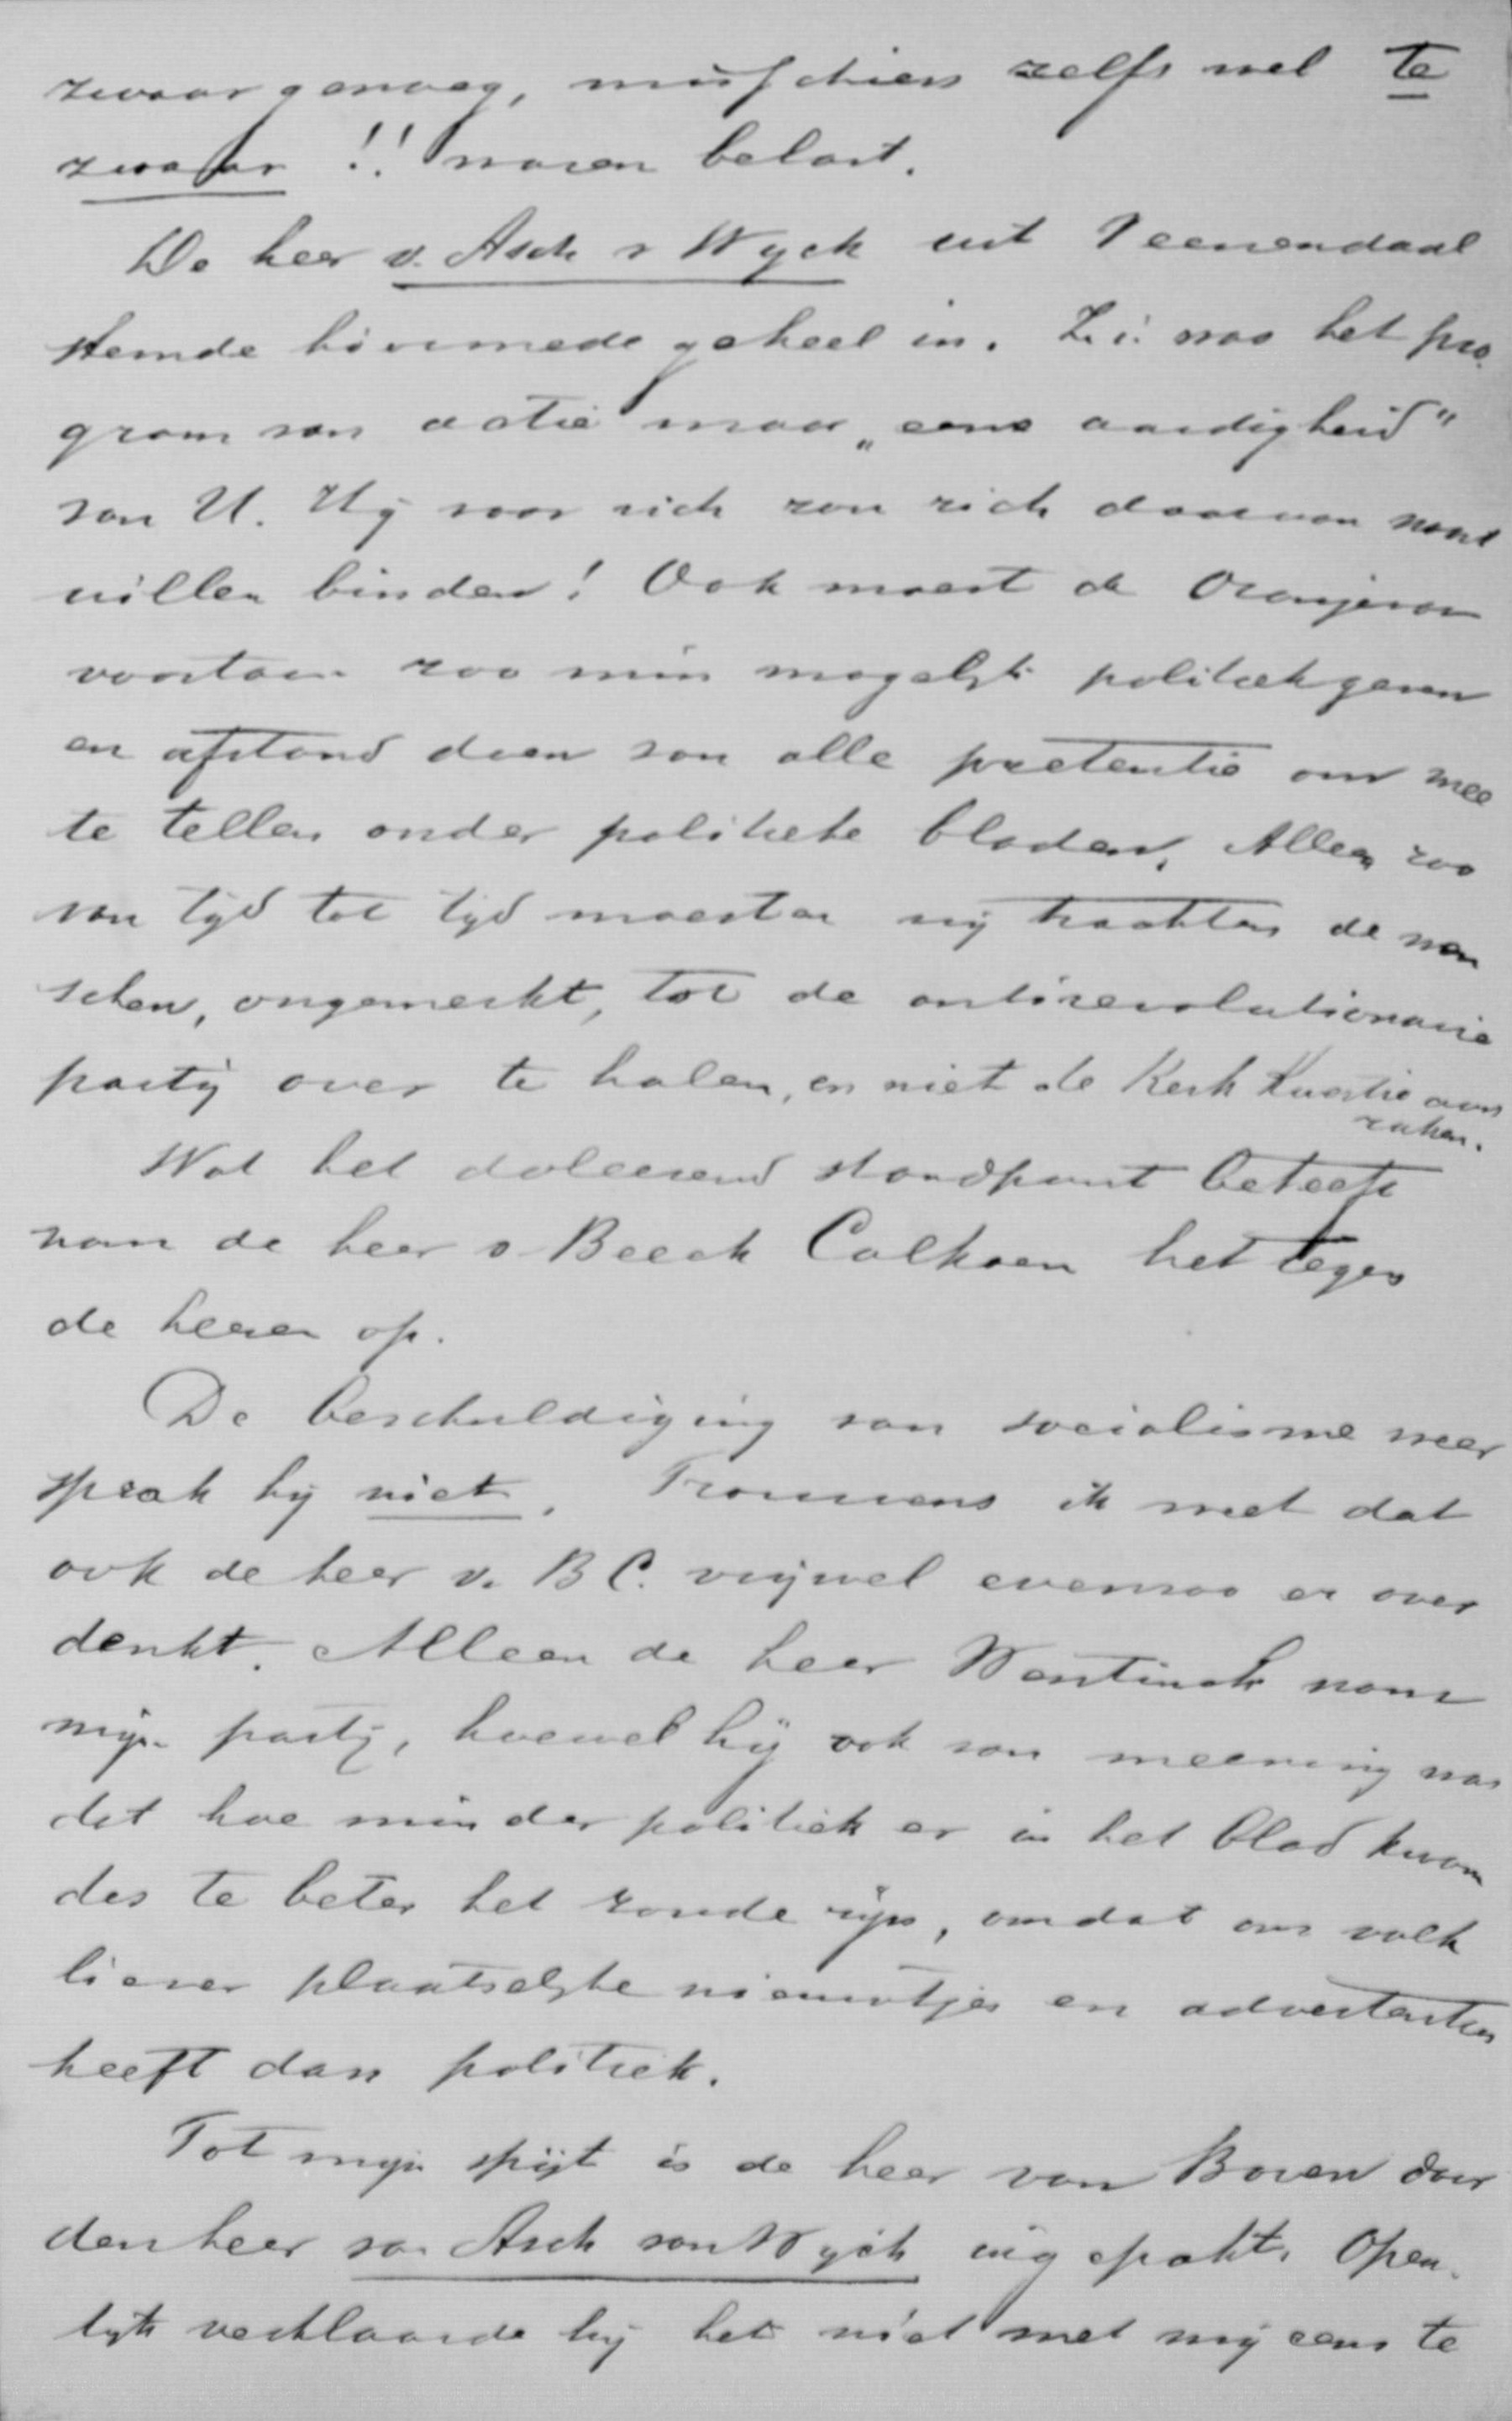 zwaar genoeg, misschien zelfs wel te
zwaar !! waren belast.
De heer v. Asch v Wyck uit Veenendaal
stemde hiermede geheel in. Z.i. was het pro
gram van actie maar „eene aardigheid”
van U. Hij voor zich zou zich daaraan nooit
willen binden! Ook moest de Oranjevaan
voortaan zoo min mogelijk politiek geven
en afstand doen van alle pretentie om mee
te tellen onder politieke bladen. Alleen zoo
van tijd tot tijd moesten wij trachten de men
schen, ongemerkt, tot de antirevolutionaire
partij over te halen, en niet de Kerk Kwestie aan
raken.
Wat het doleerend standpunt betreft
nam de heer v Beeck Calkoen het tegen
de heeren op.
De beschuldiging van socialisme weer
sprak hij niet. Trouwens ik weet dat
ook de heer v. B C. vrijwel evenzoo er over
denkt. Alleen de heer Wentinck nam
mijn partij, hoewel hij ook van meening was
dat hoe minder politiek er in het blad kwam
des te beter het zoude zijn, omdat ons volk
liever plaatselijke nieuwtjes en advertentien
heeft dan politiek.
Tot mijn spijt is de heer van Boven door
den heer van Asch van Wyck ingepakt. Open
lijk verklaarde hij het niet met mij eens te